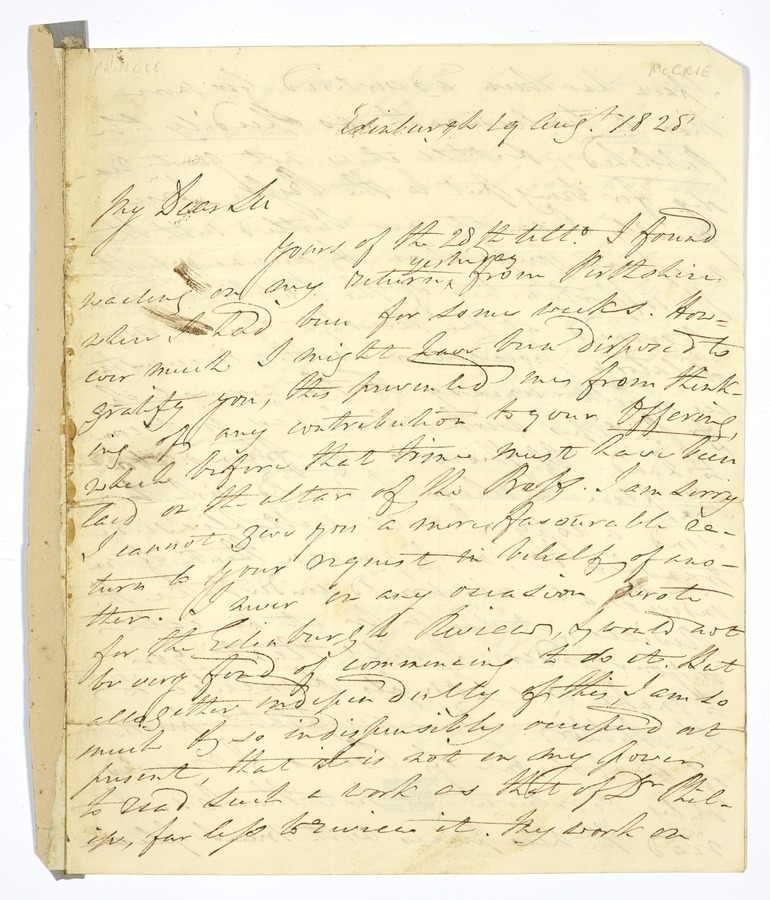 PRINGLE McCRIE
Edinburgh 29 Augt. 1828
My Dear Sir
yours of the 28th ulto. I found
yesterday
waiting on my return from Perthshire
where I had been for some weeks. How-
ever much I might have been disposed to
gratify you, this prevented me from think-
ing of any contribution to your Offering,
which before that time must have been
laid on the altar of the Press. I am sorry
I cannot give you a more favourable re-
turn to your request in behalf of ano-
ther. I never on any occasion wrote
for the Edinburgh Review, & would not
be very fond of commencing to do it. But
altogether independently of this, I am so
much & so indispensibly occupied at
present, that it is not in my power
to read such a work as that of Dr Phil-
ips, far less to review it. My work on